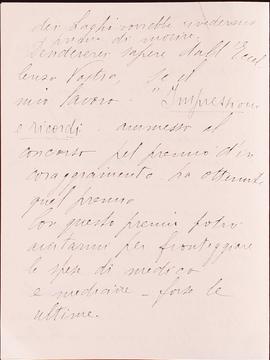 dei Laghi vorrebbe rivedermi
prima di morire.
Desidererei sapere dall'Eccel
lenza Vostra, se il
mio lavoro: "Impressioni
e ricordi" ammesso al
concorso pel premio d'in
coraggiamento ha ottenuto
quel premio
Con questo premio potrò
aiutarmi per fronteggiare
le spese di medico
e medicine - forse le
ultime.